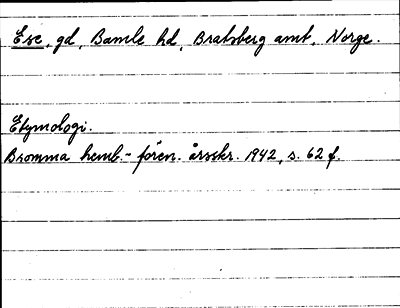 Ese, gd, Bamle hd, Bratsberg amt, Norge.
Etymologi.
Bromma hemb.-fören. årsskr. 1942, s. 62 f.